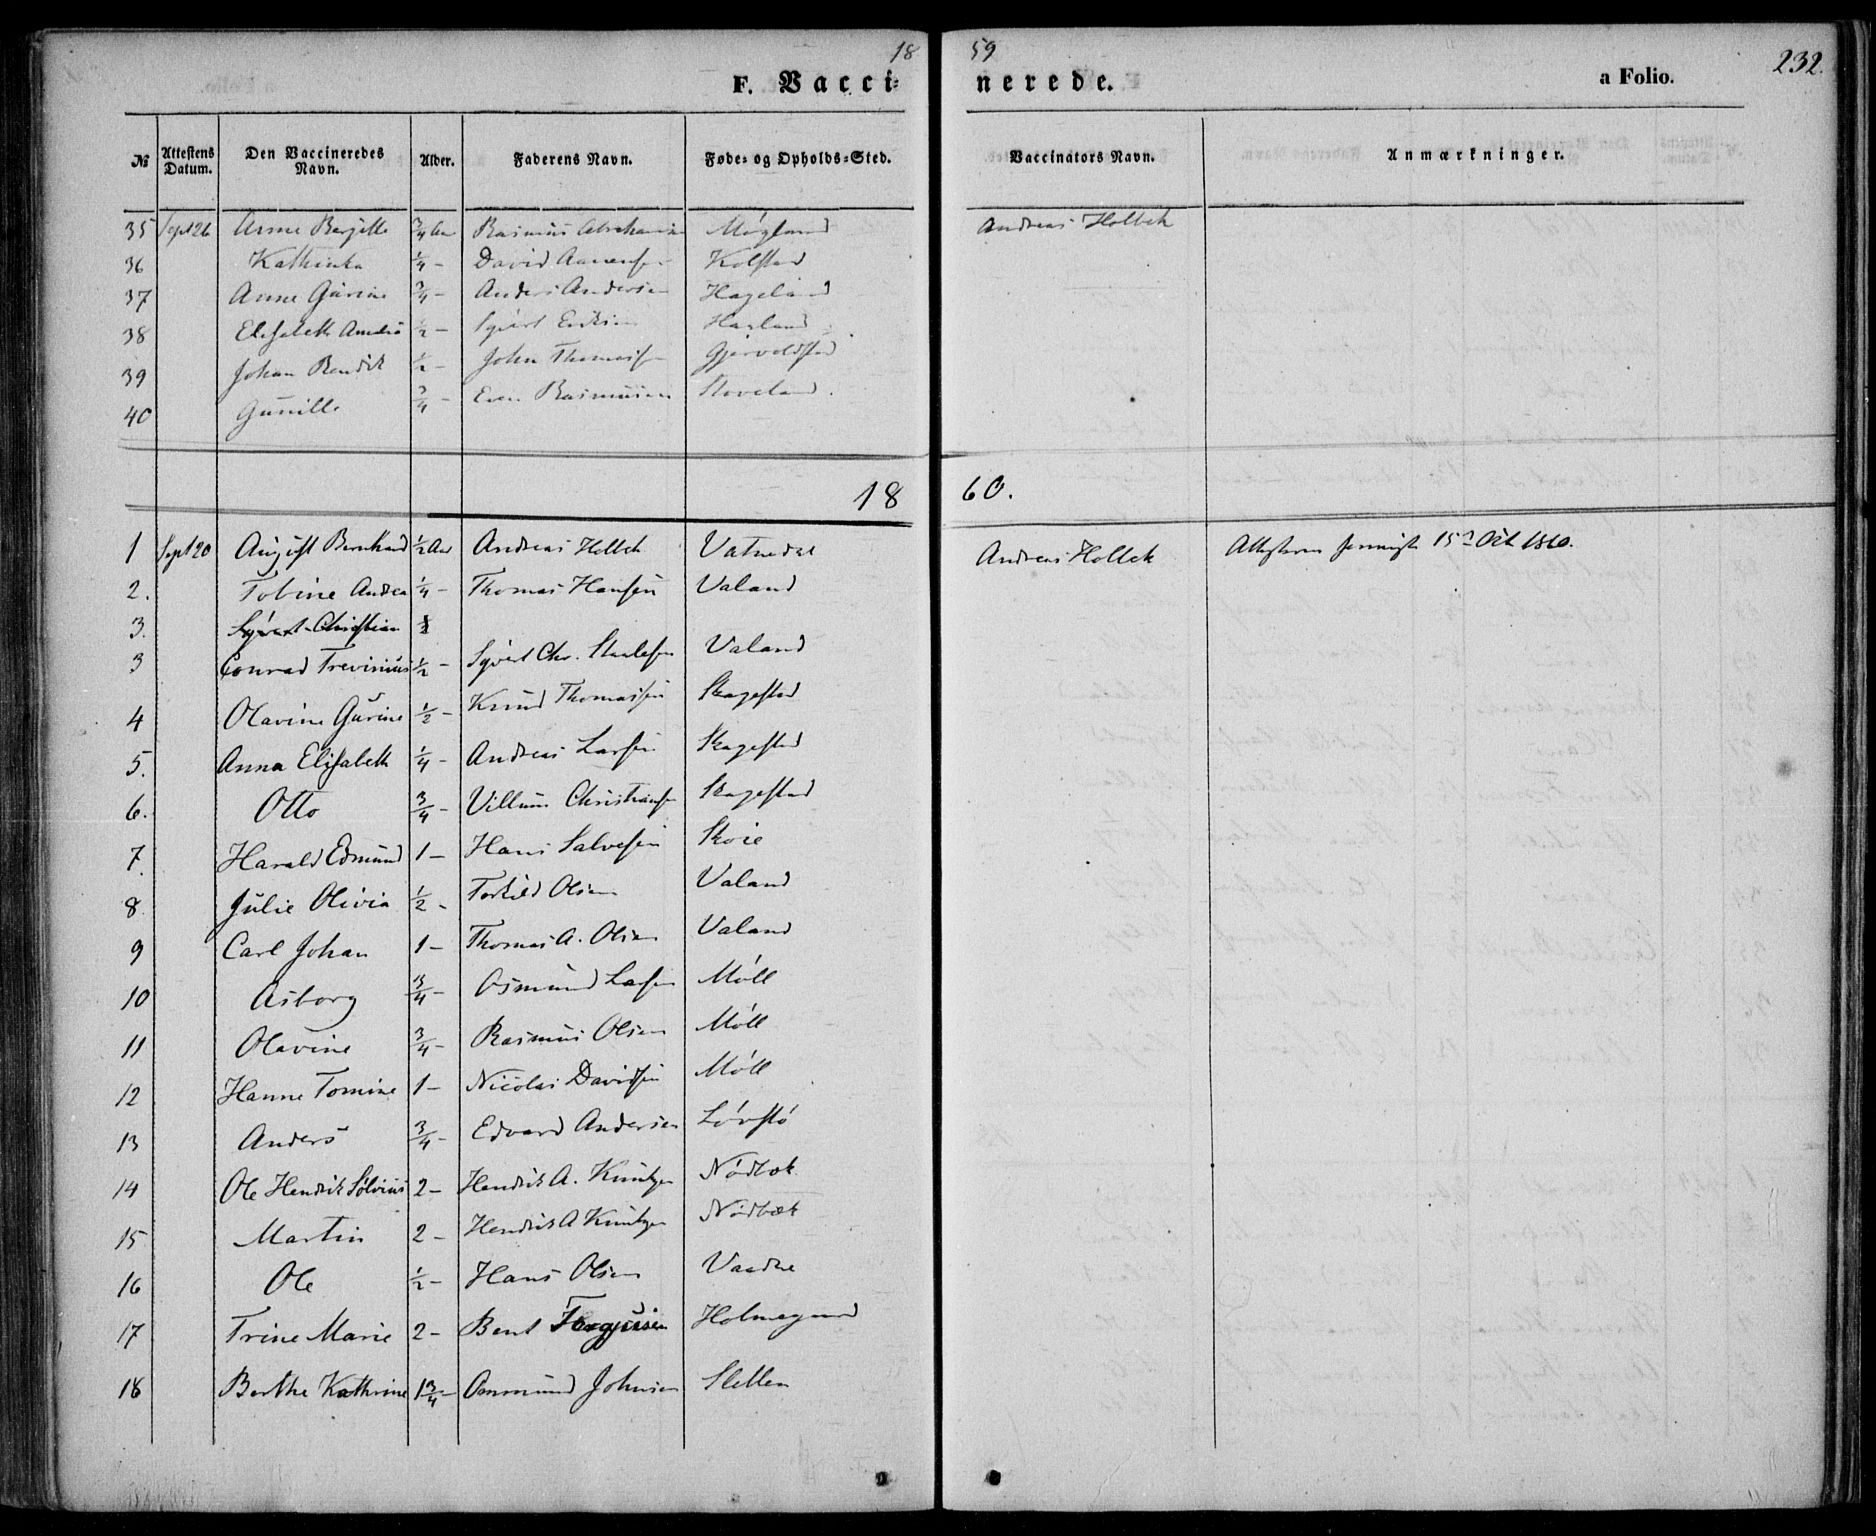 18 59 232.
F. Vacci= nerede. a Folio.
No Attestens Datum. Den Vaccineredes Navn. Alder. Faderens Navn. Føde- og Opholds-Sted. Vaccinators Navn. Anmærkninger.
35 Sept 26 Anne Berjitte 3/4 Aar Rasmus Abrahamsen Møgland Andreas Holbek
36 Kathinka 1/4 - David Aanensen Kolstad
37 Anne Gurine 3/4 - Anders Andersen Hageland
38 Elisabeth Amalia 1/2 - Syvert Eriksen Haaland
39 Johan Bendik 1/2 - John Thomassen Gjervoldstad
40 Gunille 3/4 - Even Rasmusen Stoveland.
18 60.
1 Sept 20 August Bernhard 1/2 Aar Andreas Holbek Vatnedal Andreas Holbek Attesterne 15de Oct 1860.
2. Tobine Andrea 1/4 - Thomas Hansen Valand
3. Syvert Christian 1/2
3 Conrad Trevinius 1/2 - Syvert Chr. Staalesen Valand
4 Olavine Gurine 1/2 - Knud Thomassen Skagestad
5. Anna Elisabeth 1/4 - Andreas Larsen Skagestad
6. Otto 3/4 - Villum Christiansen Skagestad
7. Harald Edmund 1 - Hans Salvesen Skoie
8. Julie Olivia 1/2 - Torkild Olsen Valand
9 Carl Johan 1 - Thomas A. Olsen Valand
10 Asborg 3/4 - Osmund Larsen Møll
11 Olavine 3/4 - Rasmus Olsen Møll
12 Hanne Tomine 1 - Nicolai Davidsen Møll
13 Anders 3/4 - Edvard Andersen Løvstø
14 Ole Hendrik Sølvius 2 - Hendrik A. Knutzen Nødbæk
15 Martin 2 - Hendrik A Knutzen Nødbæk
16 Ole 1/2 - Hans Olsen Vaadne
17 Trine Marie 2 - Bent Tergesen Holmegaard
18 Berthe Kathrine 1 3/4 - Ommund Johnsen Sletten